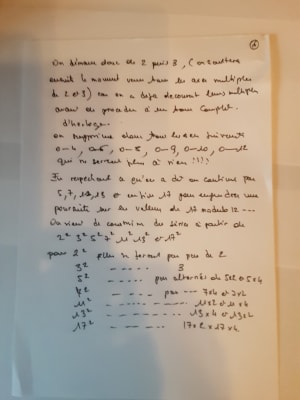 On démarre donc de 2 puis 3, (on
ensuite le moment venu tous les axes multiples
de 2 et 3) car on a déjà découvert leurs multiples
avant de procéder à un tour complet
d'horloge.
on supprime donc tous les axes suivants
0-4, 0-6, 0-8, 0-9, 0-10, 0-12
qui ne servent plus à rien !!!!
En respectant ce qu'on a dit on continue par
5, 7, 11, 13 et enfin 17 pour
poursuite sur les valeurs de 17 modulo 12 ---
On vient de construire des séries à partir de
2² 3² 5² 7² 11² 13² et 17²
pour 2² elles se feront par pas de 2
3² ----- 3
5² ----- pas alternés de 5x2 et 5x4
7² ----- pas --- 7x4 et 7x2
11² ----- 11x2 et 11x4
13² ----- 13x4 et 13x2
17² ----- 17x2 et 17x4.